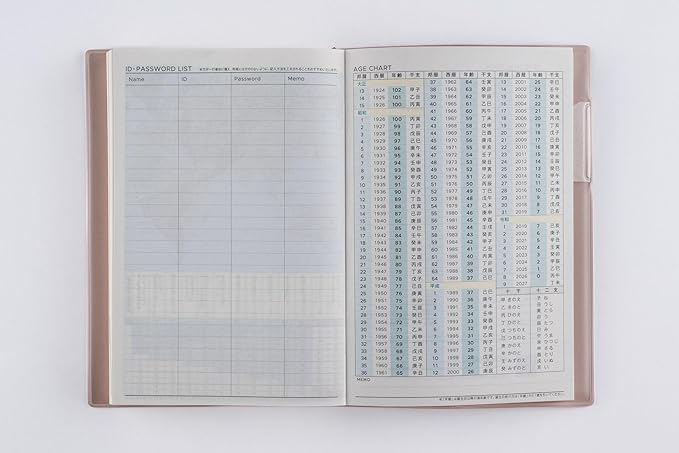 ID・PASSWORD LIST
Name ID Password Memo
AGE CHART
邦暦 西暦 年齢 干支 邦暦 西暦 年齢 干支 邦暦 西暦 年齢 干支
大正
13 1924 102 甲子
14 1925 101 乙丑
15 1926 100 丙寅
昭和
1 1926 100 丙寅
2 1927 99 丁卯
3 1928 98 戊辰
4 1929 97 己巳
5 1930 96 庚午
6 1931 95 辛未
7 1932 94 壬申
8 1933 93 癸酉
9 1934 92 甲戌
10 1935 91 乙亥
11 1936 90 丙子
12 1937 89 丁丑
13 1938 88 戊寅
14 1939 87 己卯
15 1940 86 庚辰
16 1941 85 辛巳
17 1942 84 壬午
18 1943 83 癸未
19 1944 82 甲申
20 1945 81 乙酉
21 1946 80 丙戌
22 1947 79 丁亥
23 1948 78 戊子
24 1949 77 己丑
25 1950 76 庚寅
26 1951 75 辛卯
27 1952 74 壬辰
28 1953 73 癸巳
29 1954 72 甲午
30 1955 71 乙未
31 1956 70 丙申
32 1957 69 丁酉
33 1958 68 戊戌
34 1959 67 己亥
35 1960 66 庚子
36 1961 65 辛丑
37 1962 64 壬寅
38 1963 63 癸卯
39 1964 62 甲辰
40 1965 61 乙巳
41 1966 60 丙午
42 1967 59 丁未
43 1968 58 戊申
44 1969 57 己酉
45 1970 56 庚戌
46 1971 55 辛亥
47 1972 54 壬子
48 1973 53 癸丑
49 1974 52 甲寅
50 1975 51 乙卯
51 1976 50 丙辰
52 1977 49 丁巳
53 1978 48 戊午
54 1979 47 己未
55 1980 46 庚申
56 1981 45 辛酉
57 1982 44 壬戌
58 1983 43 癸亥
59 1984 42 甲子
60 1985 41 乙丑
61 1986 40 丙寅
62 1987 39 丁卯
63 1988 38 戊辰
64 1989 37 己巳
平成
1 1989 37 己巳
2 1990 36 庚午
3 1991 35 辛未
4 1992 34 壬申
5 1993 33 癸酉
6 1994 32 甲戌
7 1995 31 乙亥
8 1996 30 丙子
9 1997 29 丁丑
10 1998 28 戊寅
11 1999 27 己卯
12 2000 26 庚辰
13 2001 25 辛巳
14 2002 24 壬午
15 2003 23 癸未
16 2004 22 甲申
17 2005 21 乙酉
18 2006 20 丙戌
19 2007 19 丁亥
20 2008 18 戊子
21 2009 17 己丑
22 2010 16 庚寅
23 2011 15 辛卯
24 2012 14 壬辰
25 2013 13 癸巳
26 2014 12 甲午
27 2015 11 乙未
28 2016 10 丙申
29 2017 9 丁酉
30 2018 8 戊戌
31 2019 7 己亥
令和
1 2019 7 己亥
2 2020 6 庚子
3 2021 5 辛丑
4 2022 4 壬寅
5 2023 3 癸卯
6 2024 2 甲辰
7 2025 1 乙巳
8 2026 0 丙午
9 2027 丁未
十干 十二支
甲 きのえ 子 ね
乙 きのと 丑 うし
丙 ひのえ 寅 とら
丁 ひのと 卯 う
戊 つちのえ 辰 たつ
己 つちのと 巳 み
庚 かのえ 午 うま
辛 かのと 未 ひつじ
壬 みずのえ 申 さる
癸 みずのと 酉 とり
戌 いぬ
亥 い
MEMO